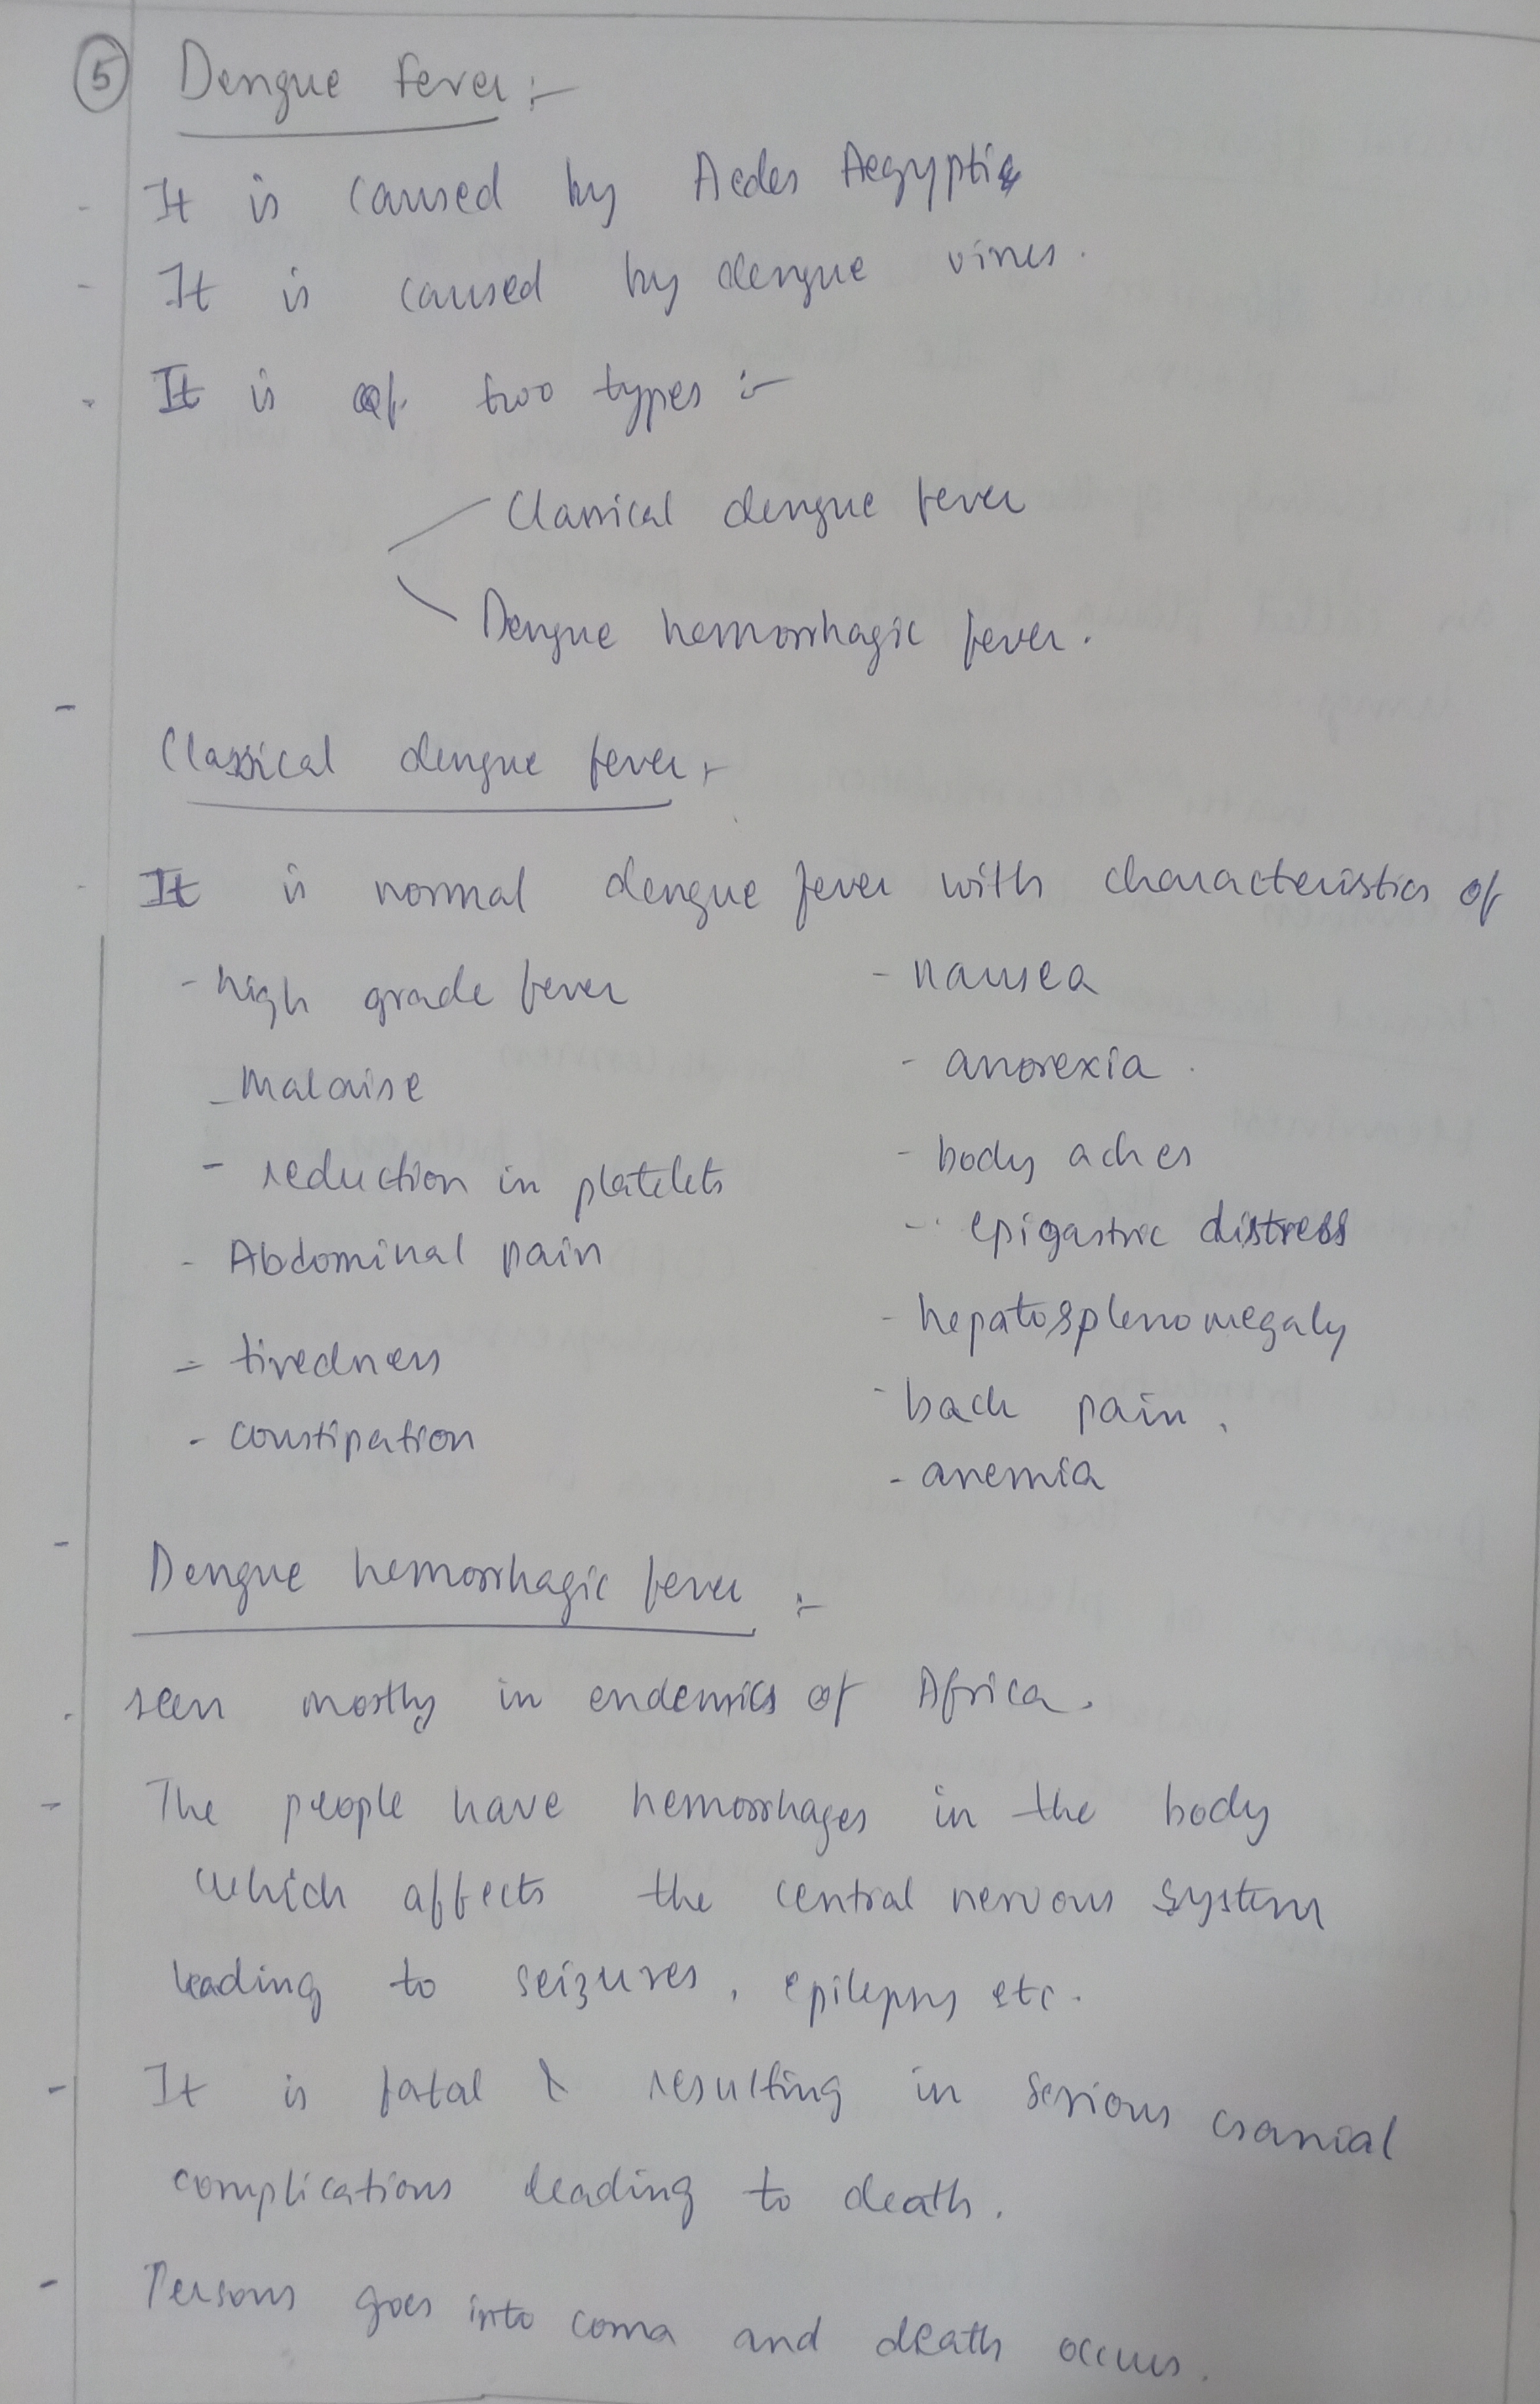 5 Dengue fever :-
- It is caused by Aedes Aegyptia
- It is caused by dengue virus.
- It is of two types :-
Classical dengue fever
Dengue hemorrhagic fever.
-
Classical dengue fever :-
- It is normal dengue fever with characteristics of
- high grade fever - nausea
- Malaise - anorexia.
- reduction in platelets - body aches
- Abdominal pain - epigastric distress
- tiredness - hepatosplenomegaly
- constipation - back pain.
- anemia
- Dengue hemorrhagic fever :-
. seen mostly in endemics of Africa.
- The people have hemorrhages in the body
which affects the central nervous system
leading to seizures, epilepsy etc.
- It is fatal & resulting in serious cranial
complications leading to death.
- Persons goes into coma and death occurs.